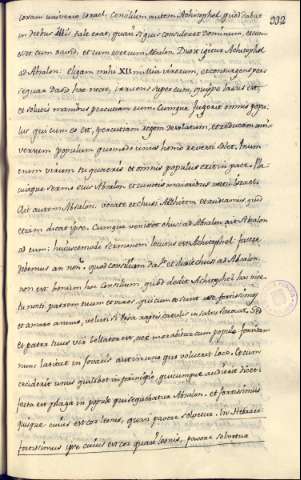 332
coram universo Israel. Consilium autem Achitophel quod dabat
in diebus illis tale erat, quasi si quis consuleret Dominum,
et cum David, et cum esset cum Absalon. Dixit igitur Achitophel
ad Absalon. Eligam mihi XII millia virorum, et consurgens per-
sequar David hac nocte, irruens super eum, quippe lassus est,
et solutis manibus percutiam eum. Cumque fugerit omnis popu-
lus qui cum eo est, percutiam regem desolatum, et reducam uni-
versum populum quomodo unus homo reverti solet. Unum
enim virum tu quaeris et omnis populus erit in pace. Pla-
cuitque sermo eius Absalon et cunctis maioribus natu Israel.
Ait autem Absalon. vocate et chusai Arachitem et audiamus quid
etiam dicat ipse. Cumque venisset chusai ad Absalon ait Absalon
ad eum: huiuscemodi sermonem locutus est Achitophel facere
debemus an non? quod consilium das? et dixit chusai ad Absalon.
non est bonum hoc consilium quod dedit Achitophel hac vice
tu nosti patrem tuum et viros qui cum eo sunt esse fortissimos
et amaro animo, veluti si ursa raptis catulis in saltu saeviat. Sed
et pater tuus vir bellator est, nec morabitur cum populo forsitan
nunc latitat in foveis aut in uno quo voluerit loco. Et cum
ceciderit unus quilibet in principio, quicumque audierit dicet:
facta est plaga in populo qui sequebatur Absalon. et fortissimus
quisque cuius est cor leonis, quasi pavore solvetur. In Hebraeo
fortissimus ipse cuius est cor quasi leonis, pavore solvetur